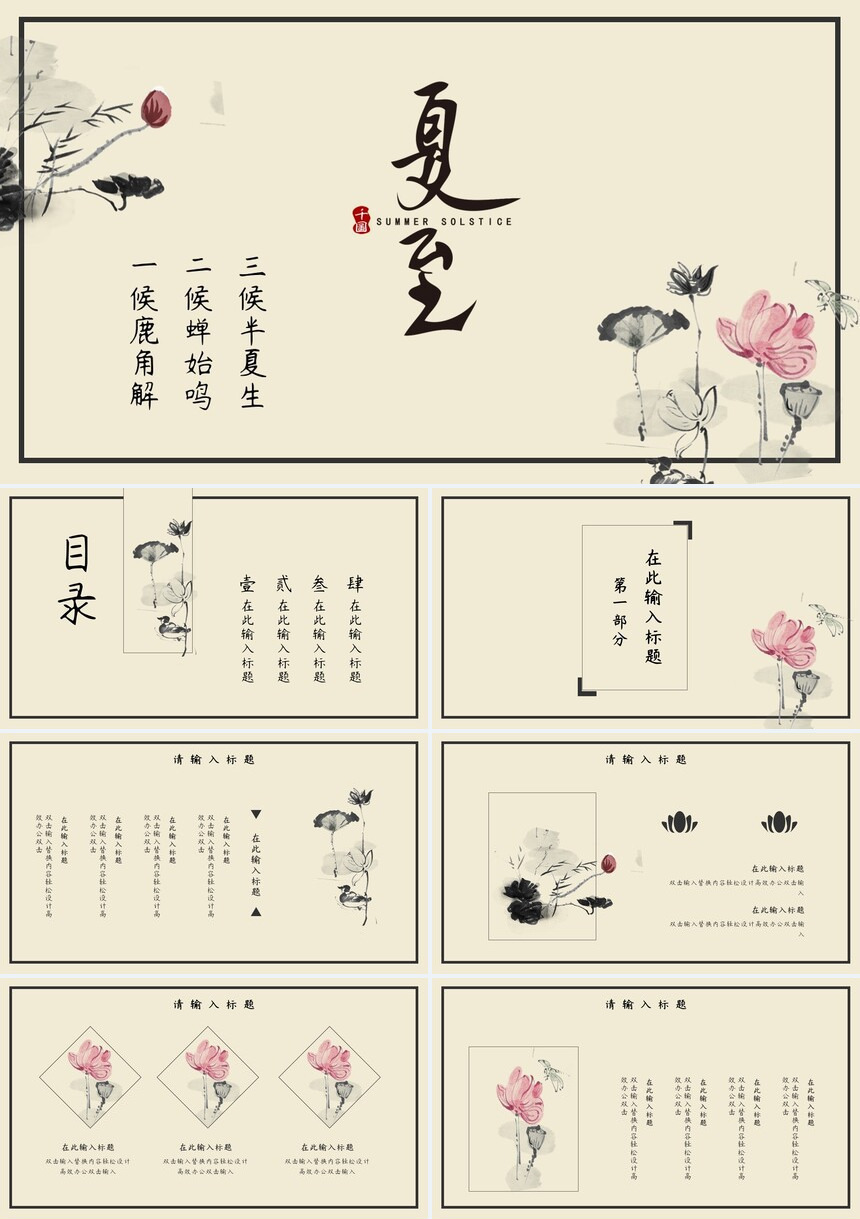 夏至
千图
SUMMER SOLSTICE
三候半夏生
二候蝉始鸣
一候鹿角解
目录
壹 在此输入标题
贰 在此输入标题
叁 在此输入标题
肆 在此输入标题
在此输入标题
第一部分
请输入标题
在此输入标题
在此输入标题
双击输入替换内容轻松设计高
效办公双击
在此输入标题
双击输入替换内容轻松设计高
效办公双击
在此输入标题
双击输入替换内容轻松设计高
效办公双击
在此输入标题
双击输入替换内容轻松设计高
效办公双击
请输入标题
在此输入标题
双击输入替换内容轻松设计高效办公双击输
入
在此输入标题
双击输入替换内容轻松设计高效办公双击输
入
请输入标题
在此输入标题
双击输入替换内容轻松设计
高效办公双击输入
在此输入标题
双击输入替换内容轻松设计
高效办公双击输入
在此输入标题
双击输入替换内容轻松设计
高效办公双击输入
请输入标题
在此输入标题
双击输入替换内容轻松设计高
效办公双击
在此输入标题
双击输入替换内容轻松设计高
效办公双击
在此输入标题
双击输入替换内容轻松设计高
效办公双击
在此输入标题
双击输入替换内容轻松设计高
效办公双击